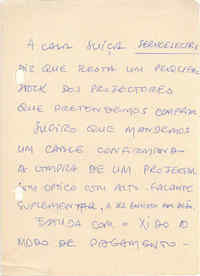 A CASA SUIÇA SERVOELECTRIC
DIZ QUE RESTA UM PEQUENO
STOCK DOS PROJECTORES
QUE PRETENDEMOS COMPRAR
SUGIRO QUE MANDEMOS
UM CABLE CONFIRMANDO
A COMPRA DE UM PROJECTOR
SOM OPTICO COM ALTI-FALANTE
SUPLEMENTAR, A
ESTUDA COM O XIDO O
MODO DE PAGAMENTO -